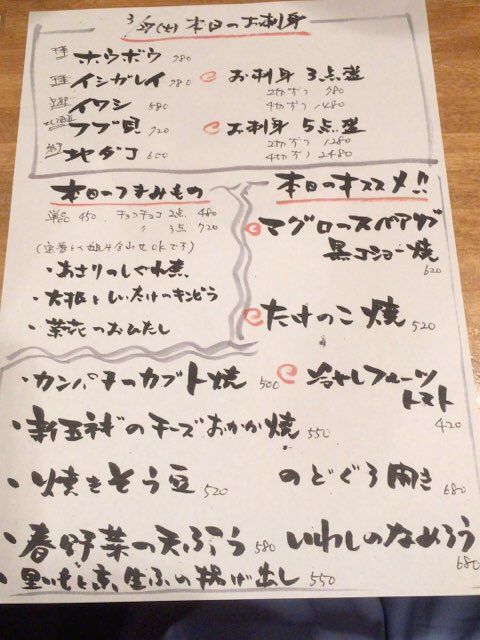 本日のお刺身
ホウボウ 980
イシガレイ 980
イワシ 580
ツブ貝 720
地ダコ 600
お刺身 3点盛
2切ずつ 980
4切ずつ 1480
お刺身 5点盛
2切ずつ 1280
4切ずつ 2480
本日のつまみもの
単品 450 チョコチョコ 2点 480
〃 3点 720
・あさりのしぐれ煮
・大根としいたけのキンピラ
・菜花のおひたし
本日のオススメ!!
マグロのスペアリブ
黒コショー焼
620
たけのこ焼 520
冷やしフルーツ
トマト
420
・カンパチのカブト焼 500
・新玉ねぎのチーズおかか焼 550
・焼きそら豆 520
のどぐろ開き 680
・春野菜の天ぷら 580
いわしのなめろう
680
・里いもと京生ふの揚げ出し 550